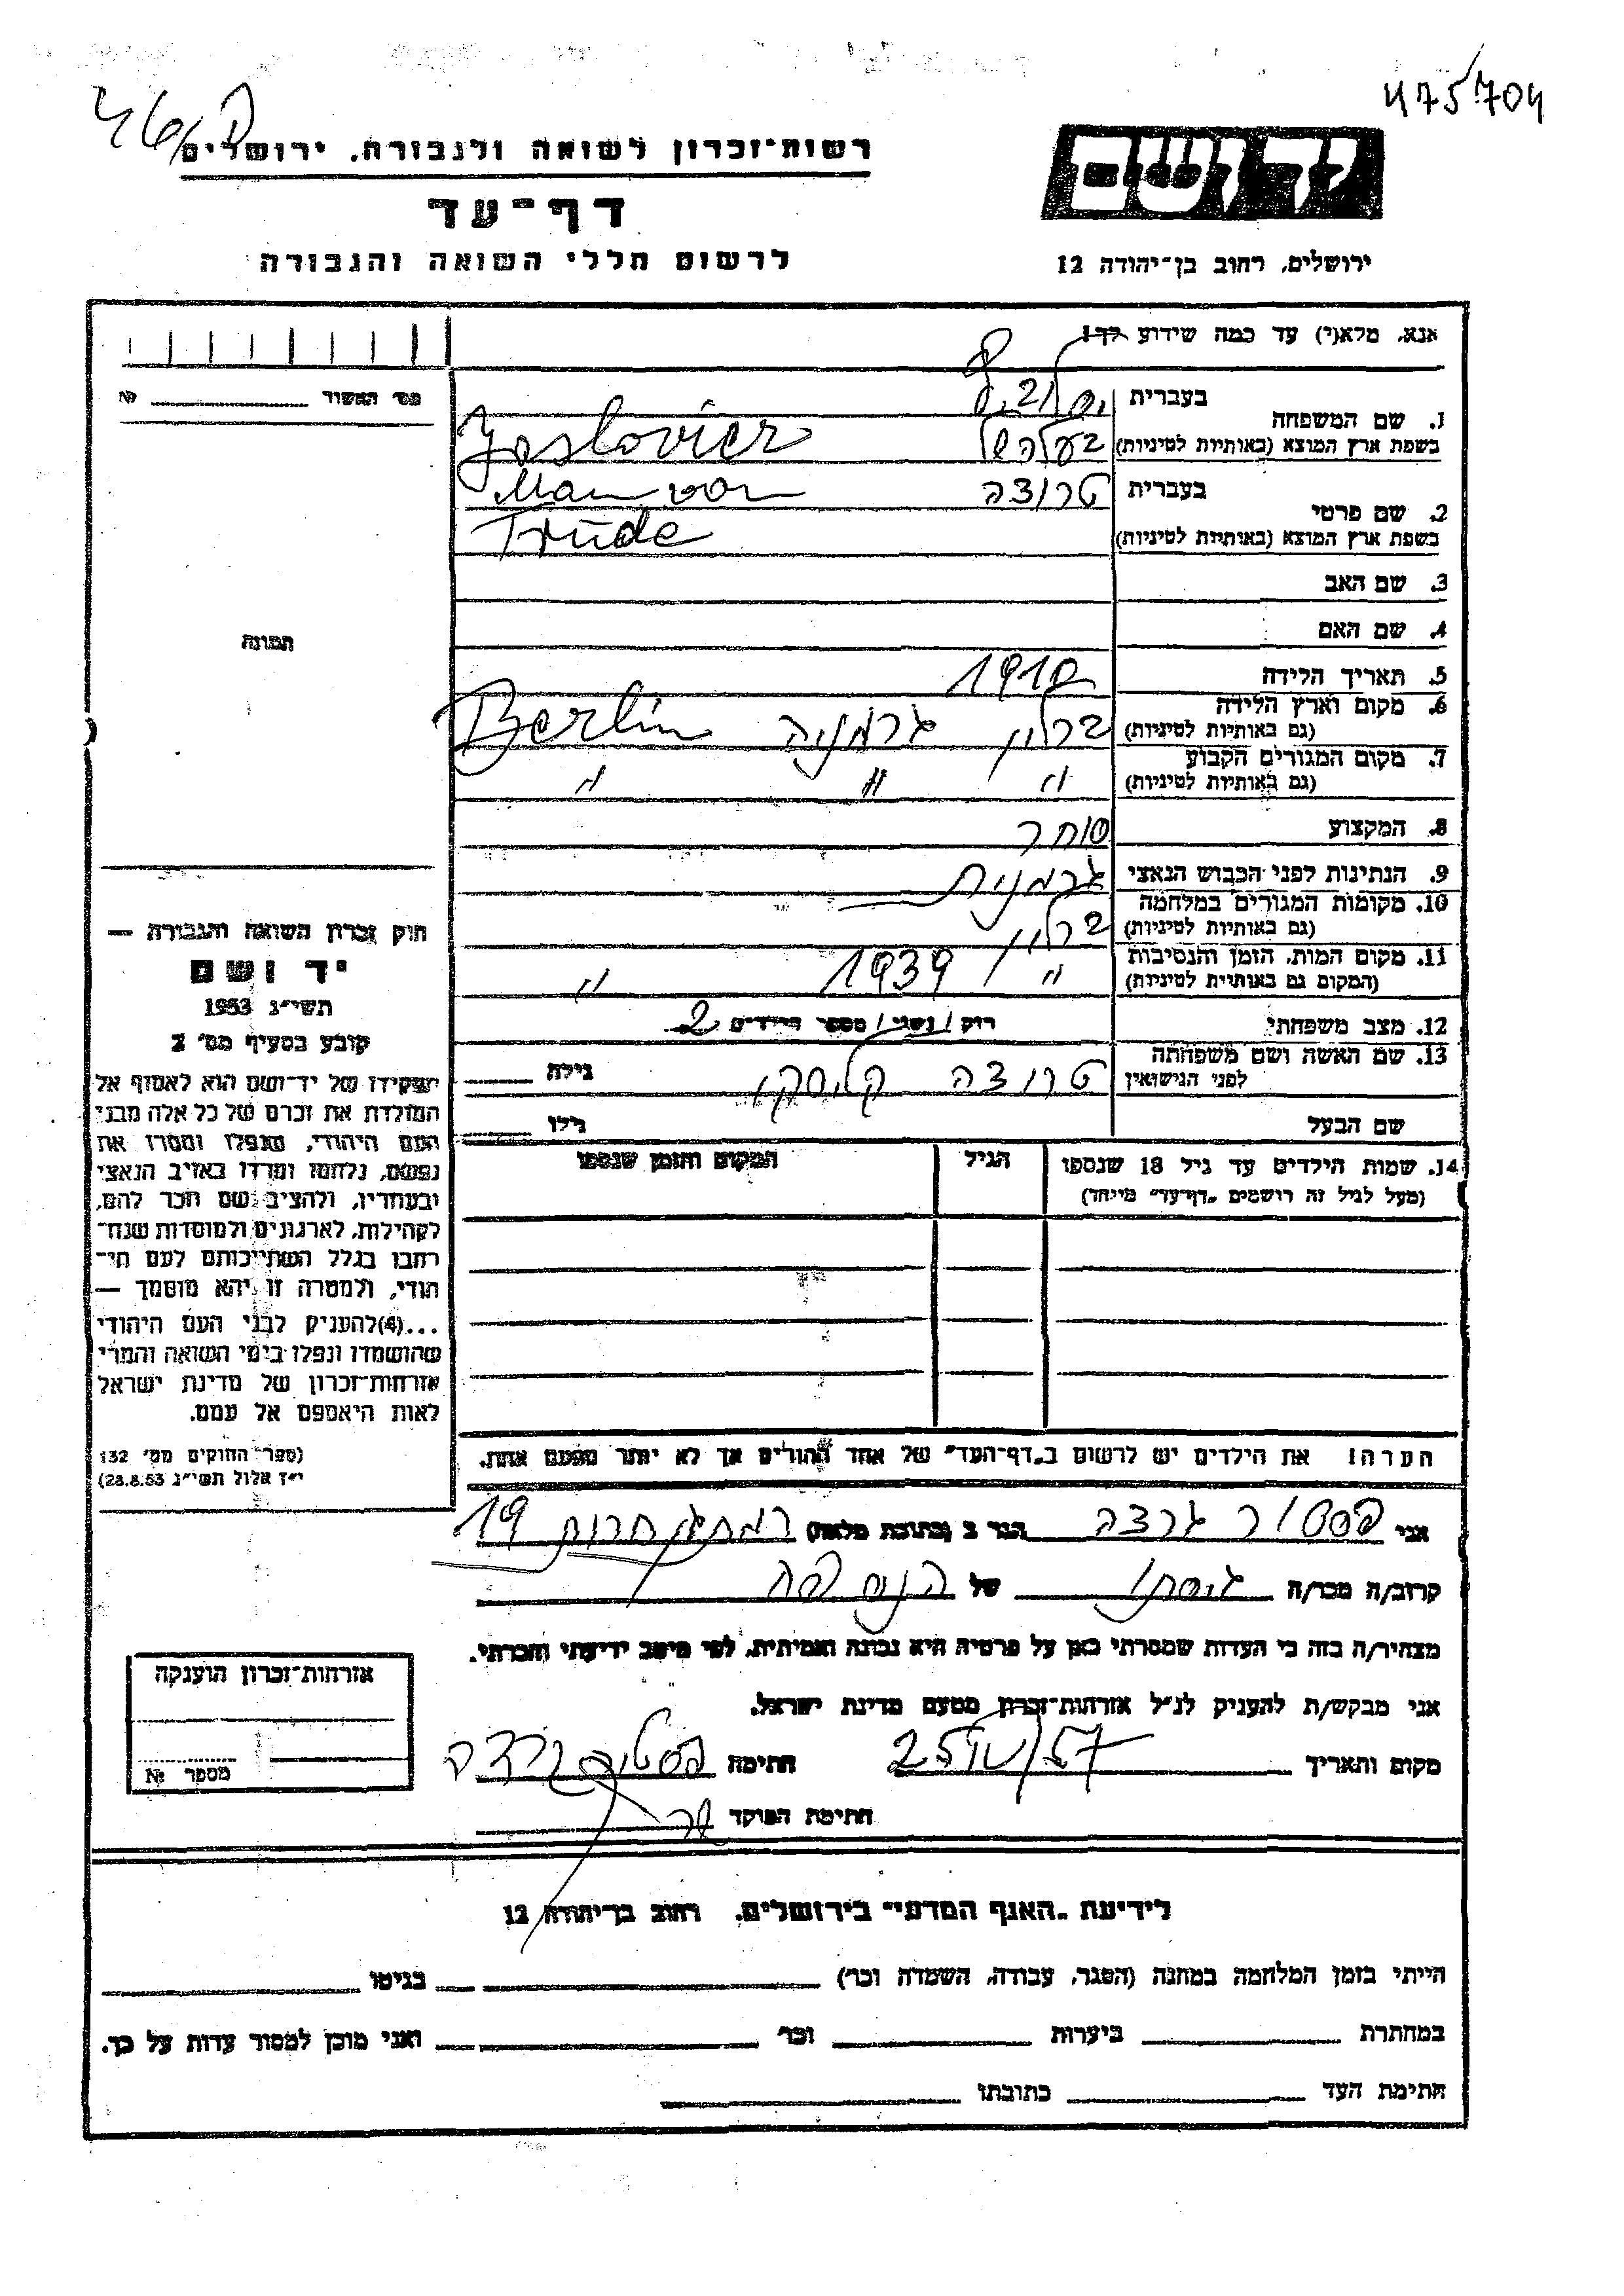 475704
רשות-זכרון לשואה ולגבורה, ירושלים
דף-עד
לרשום חללי השואה והגבורה
ידושם
ירושלים, רחוב בן-יהודה 12
אנא, מלא(י) עד כמה שידוע לך!
מס' האשור № 
1. שם המשפחה
בעברית
בשפת ארץ המוצא (באותיות לטיניות)
בעלה של
Joslovicz
2. שם פרטי
בעברית טרוצה Man von
בשפת ארץ המוצא (באותיות לטיניות) Trude
3. שם האב
4. שם האם
תמונה
5. תאריך הלידה 1910
6. מקום וארץ הלידה (גם באותיות לטיניות) ברלין גרמניה Berlin
7. מקום המגורים הקבוע (גם באותיות לטיניות) " " "
8. המקצוע סוחר
9. הנתינות לפני הכבוש הנאצי גרמנית
10. מקומות המגורים במלחמה (גם באותיות לטיניות) ברלין
11. מקום המות, הזמן והנסיבות (המקום גם באותיות לטיניות) " 1939 "
12. מצב משפחתי רוק / נשוי / מספר הילדים 2
13. שם האשה ושם משפחתה לפני הנישואין טרוצה גילה
שם הבעל גילו
14. שמות הילדים עד גיל 18 שנספו (מעל לגיל זה רושמים "דף-עד" מיוחד)
הגיל
המקום והזמן שנספו
הערה! את הילדים יש לרשום ב"דף-העד" של אחד ההורים אך לא יותר מפעם אחת.
חוק זכרון השואה והגבורה —
יד ושם
תשי"ג 1953
קובע בסעיף מס' 2
תפקידו של יד-ושם הוא לאסוף אל
המולדת את זכרם של כל אלה מבני
העם היהודי, שנפלו ומסרו את
נפשם, נלחמו ומרדו באויב הנאצי
ובעוזריו, ולהציב שם וזכר להם,
לקהילות, לארגונים ולמוסדות שנח־
רבו בגלל השתייכותם לעם הי־
הודי, ולמטרה זו יהא מוסמך —
...(4) להעניק לבני העם היהודי
שהושמדו ונפלו בימי השואה והמרי
אזרחות-זכרון של מדינת ישראל
לאות היאספם אל עמם.
(ספר החוקים מס' 132
י"ז אלול תשי"ג 28.8.53)
אני גרצה הגר ב (כתובת מלאה) רמת גן חרות 19
קרוב/ה מכר/ה גיסתו של הנספה
מצהיר/ה בזה כי העדות שמסרתי כאן על פרטיה היא נכונה ואמיתית, לפי מיטב ידיעתי והכרתי.
אני מבקש/ת להעניק לנ"ל אזרחות-זכרון מטעם מדינת ישראל.
מקום ותאריך חתימה
חתימת הפוקד
אזרחות-זכרון הוענקה
מספר №
לידיעת "האגף המדעי" בירושלים, רחוב בן-יהודה 12
הייתי בזמן המלחמה במחנה (הסגר, עבודה, השמדה וכו') בגיטו
במחתרת ביערות וכו' ואני מוכן למסור עדות על כך.
חתימת העד כתובתו